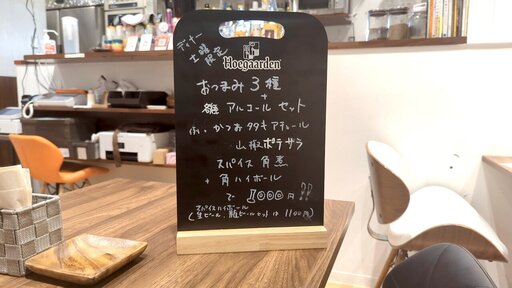 ディナー
土曜限定
Hoegaarden
おつまみ3種
+
アルコール セット
例. かつおタタキアチャール
山椒ポテサラ
スパイス角煮
+ 角ハイボール
で 1000円!!
スパイスハイボール
(生ビール、瓶ビールセットは 1100円)